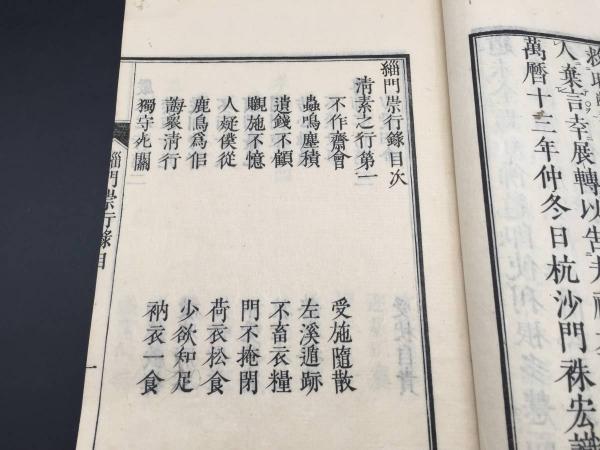 人棄言幸展轉以告夫禪
萬曆十三年仲冬日杭沙門袾宏識
緇門崇行錄目次
清素之行第一
不作齋會　受施隨散
蟲鳴塵積　左溪遁跡
遺錢不顧　不畜衣糧
覩施不憶　門不掩閉
人疑僕從　荷衣松食
鹿鳥爲侶　少欲知足
清行　衲衣一食
獨守死關
緇門崇行錄目　一